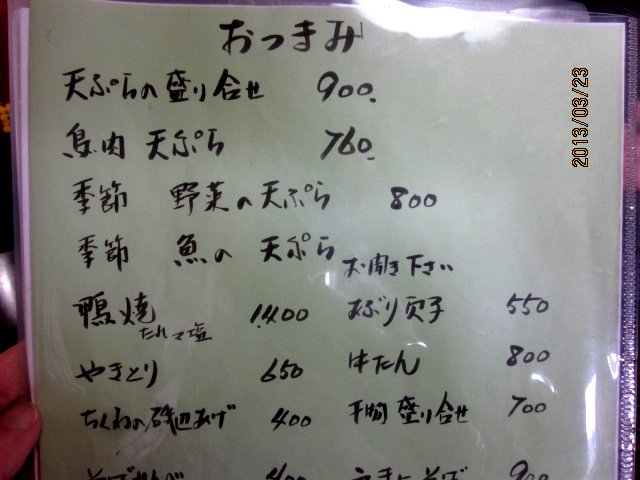 おつまみ
天ぷらの盛り合せ 900.
鳥肉 天ぷら 760.
季節 野菜の天ぷら 800
季節 魚の 天ぷら お聞き下さい
鴨焼 たれ 塩 1.400
あぶり 550
やきとり 650
牛たん 800
ちくわの磯辺あげ 400
干物 盛り合せ 700
400
900
2013/03/23